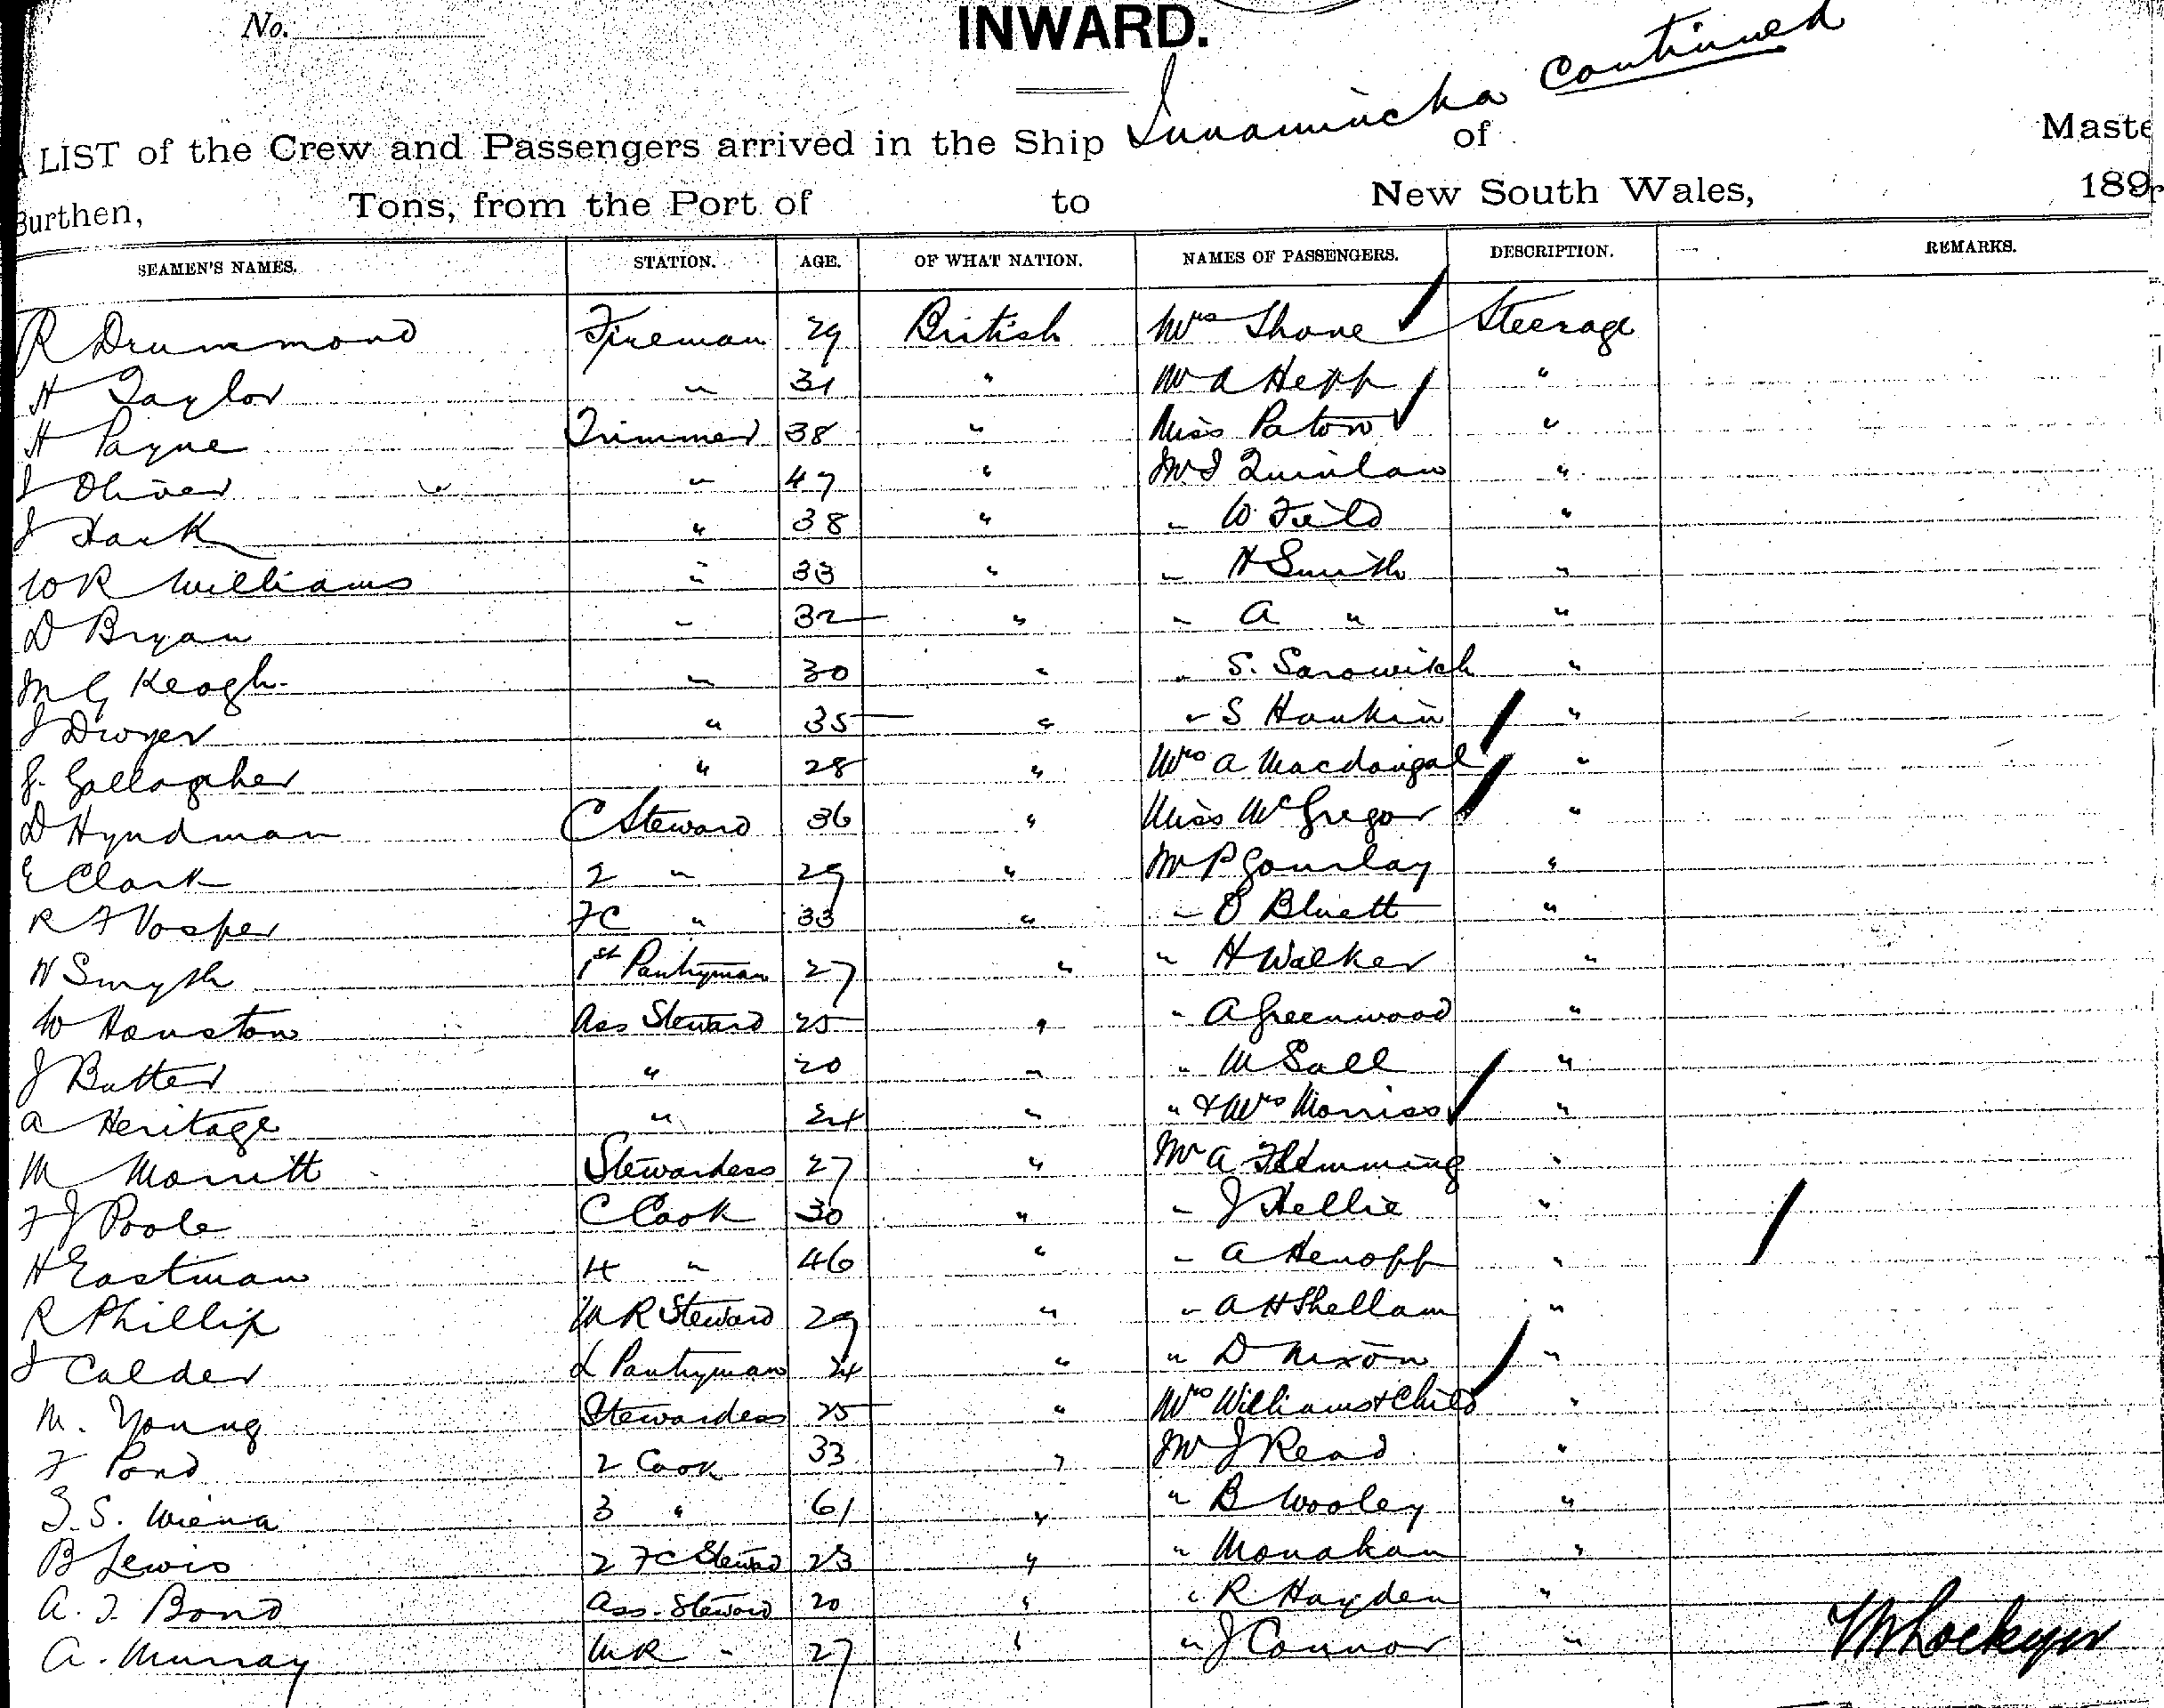 No.
INWARD.
continued
LIST of the Crew and Passengers arrived in the Ship Innamincka of Maste
Burthen, Tons, from the Port of to New South Wales, 189
SEAMEN'S NAMES. STATION. AGE. OF WHAT NATION. NAMES OF PASSENGERS. DESCRIPTION. REMARKS.
R Drummond Fireman 29 British Mrs Shane Steerage
H Taylor " 31 " Mr A Hepp "
H Payne Trimmer 38 " Miss Paton "
J Oliver " 47 " Mr J Quinlan "
J Hack " 38 " " W Field "
W R Williams " 33 " " H Smith "
D Bryan " 32 " " A " "
M G Keogh " 30 " " S. Sarowitch "
J Dwyer " 35 " " S Hankin "
J. Gallagher " 28 " Mrs A Macdougal "
D Hyndman C Steward 36 " Miss McGregor "
E Clark 2 " 29 " Mr P Gourlay "
R F Vosper FC " 33 " " O Bluett "
W Smyth 1st Pantryman 27 " " H Walker "
W Houston Ass Steward 25 " " A Greenwood "
J Batter " 20 " " M Sall "
A Heritage " 24 " " & Mrs Morriss "
M Morritt Stewardess 27 " Mr A Flemming "
F J Poole C Cook 30 " " J Hellie "
H Eastman 4 " 46 " " A Henopp "
R Phillip M R Steward 29 " " A H Shellam "
J Calder L Pantryman 24 " " D Nixon "
M. Young Stewardess 25 " Mrs Williams & Child "
F Pond 2 Cook 33 " Mr J Read "
S. Wiena 3 " 61 " " B Wooley "
B Lewis 2 FC Steward 23 " " Monahan "
A. J. Bond Ass. Steward 20 " " R Hayden "
A. Murray M R " 27 " " J Connor "
Lockyer